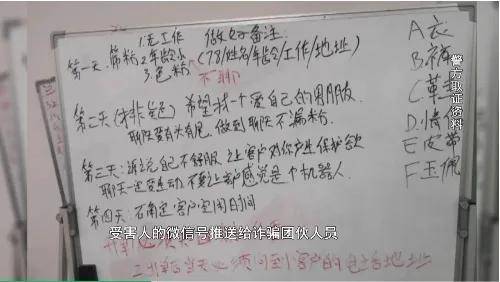 1.无工作 做好备注:
第一天:筛粉 2.年龄小 (78/姓名/年龄/工作/地址)
3.色粉 不聊
第二天 希望找一个爱自己的男朋友.
聊天要有头有尾 做到聊天不漏粉.
第三天:诉说自己不舒服 让客户对你产生保护欲
聊天一定要生动 不要让客户感觉是个机器人.
第四天: 确定客户空闲时间
A衣
B.裤
C.
D.
E皮带
F.玉佩
警方取证资料
受害人的微信号推送给诈骗团伙人员
当天必须问到客户的 地址